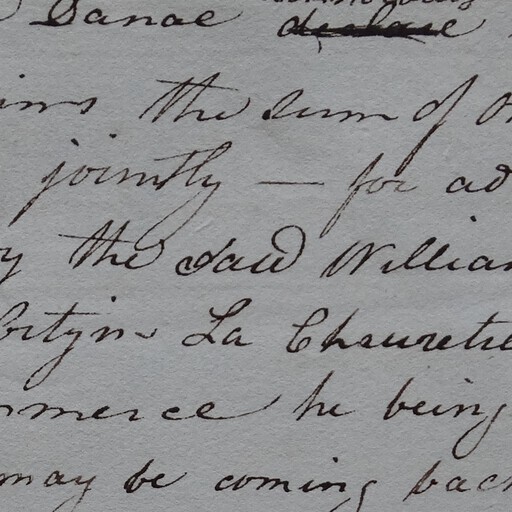 Danae
the sum of
jointly — for ad
the said William
La Chauretie
merce he being
may be coming back